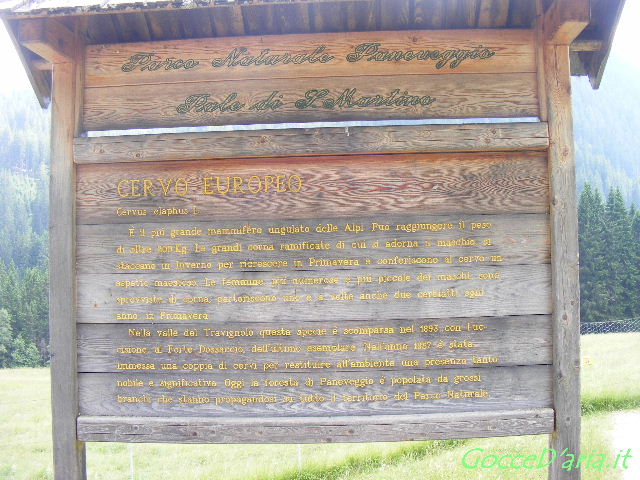 Parco Naturale Paneveggio
Pale di S. Martino
CERVO EUROPEO
Cervus elaphus L.
È il più grande mammifero ungulato delle Alpi. Può raggiungere il peso
di oltre Kg. Le grandi corna ramificate di cui si adorna il maschio si
staccano in Inverno per ricrescere in Primavera e conferiscono al cervo un
aspetto maestoso. Le femmine, più numerose e più piccole dei maschi, sono
sprovviste di corna; partoriscono uno e a volte anche due cerbiatti ogni
anno in Primavera.
Nella valle del Travignolo questa specie è scomparsa nel 1893 con l'uc-
cisione, al Forte Dossaccio, dell'ultimo esemplare. Nell'anno è stata
immessa una coppia di cervi per restituire all'ambiente una presenza tanto
nobile e significativa. Oggi la foresta di Paneveggio è popolata da grossi
branchi che stanno propagandosi su tutto il territorio del Parco Naturale.
GocceD'aria.it